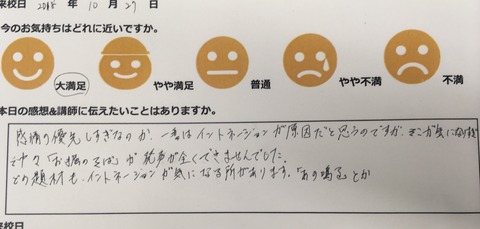 来校日 2018 年 10 月 27 日
今のお気持ちはどれに近いですか。
大満足 やや満足 普通 やや不満 不満
本日の感想&講師に伝えたいことはありますか。
感情の優先しすぎなのか、一番はイントネーションが原因だと思うのですが、そこが気になりすぎ
で中々「お堀のそば」が発声が全くできませんでした。
どの題材も、イントネーションが気になる所があります。「あの鳴る」とか
来校日